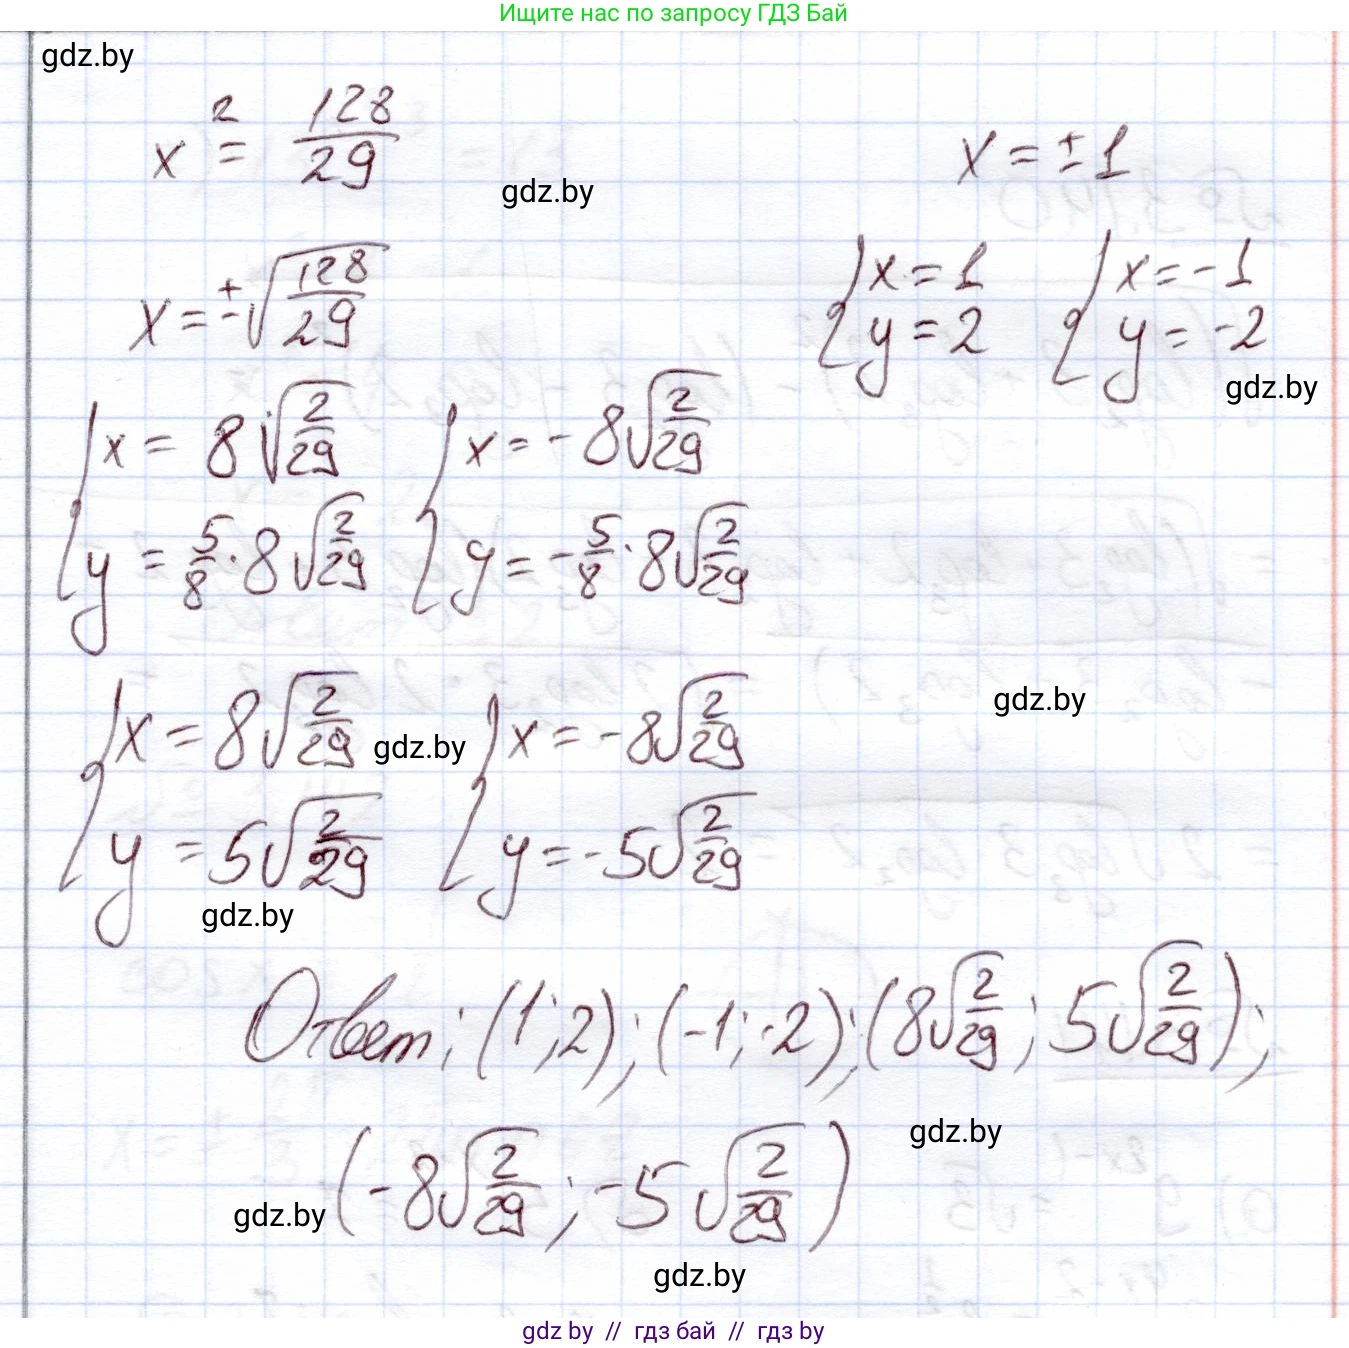 Ищите нас по запросу ГДЗ Бай
gdz.by
x² = 128/29
x = ±1
gdz.by
x = ±√(128/29)
{ x = 1 { x = -1
{ y = 2 { y = -2
gdz.by
{ x = 8√(2/29) { x = -8√(2/29)
{ y = 5/8 · 8√(2/29) { y = -5/8 · 8√(2/29)
gdz.by
{ x = 8√(2/29) gdz.by { x = -8√(2/29)
{ y = 5√(2/29) { y = -5√(2/29)
gdz.by
Ответ: (1; 2); (-1; -2); (8√(2/29); 5√(2/29));
gdz.by
(-8√(2/29); -5√(2/29))
gdz.by
gdz.by
gdz by // гдз бай // гдз by